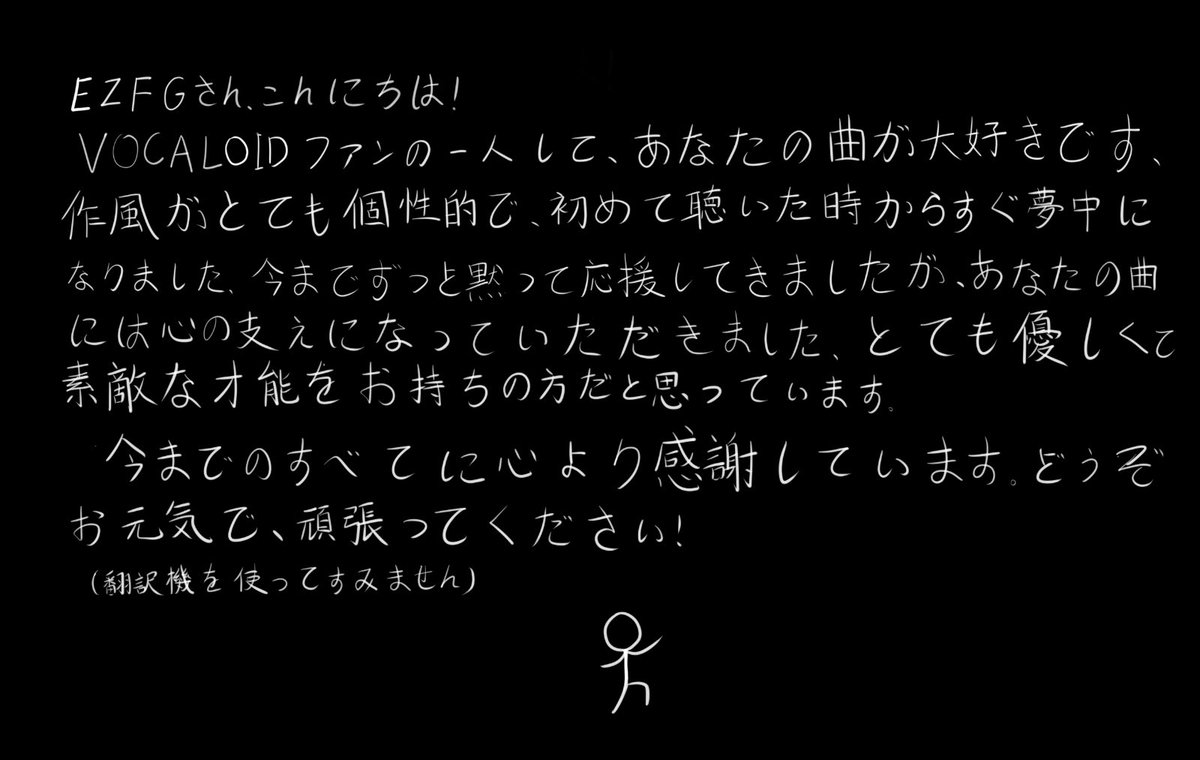 EZFGさん、こんにちは!
VOCALOIDファンの一人して、あなたの曲が大好きです、
作風がとても個性的で、初めて聴いた時からすぐ夢中に
なりました、今までずっと黙って応援してきましたが、あなたの曲
には心の支えになっていただきました、とても優しくて
素敵な才能をお持ちの方だと思っています。
今までのすべてに心より感謝しています。どうぞ
お元気で、頑張ってください!
(翻訳機を使ってすみません)